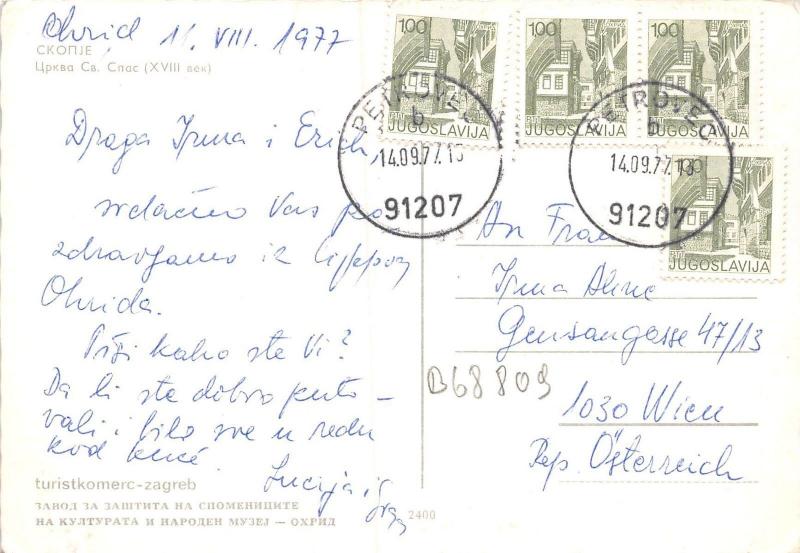 Ohrid 11. VIII. 1977
СКОПЈЕ
Црква Св. Спас (XVIII век)
Draga Irma i Erich,
srdačno Vas po
zdravljamo iz lijepog
Ohrida.
Piši kako ste Vi?
Da li ste dobro puto-
vali i bilo sve u redu
kod kuće.
Lucija i
turistkomerc-zagreb
ЗАВОД ЗА ЗАШТИТА НА СПОМЕНИЦИТЕ
НА КУЛТУРАТА И НАРОДЕН МУЗЕЈ — ОХРИД
2400
1.00
JUGOSLAVIJA
1.00
JUGOSLAVIJA
1.00
JUGOSLAVIJA
1.00
JUGOSLAVIJA
PETROVEC
b
14.09.77.13
91207
PETROVEC
b
14.09.77.13
91207
An Frau
Irma
47/13
1030 Wien
Rep. Österreich
B68809